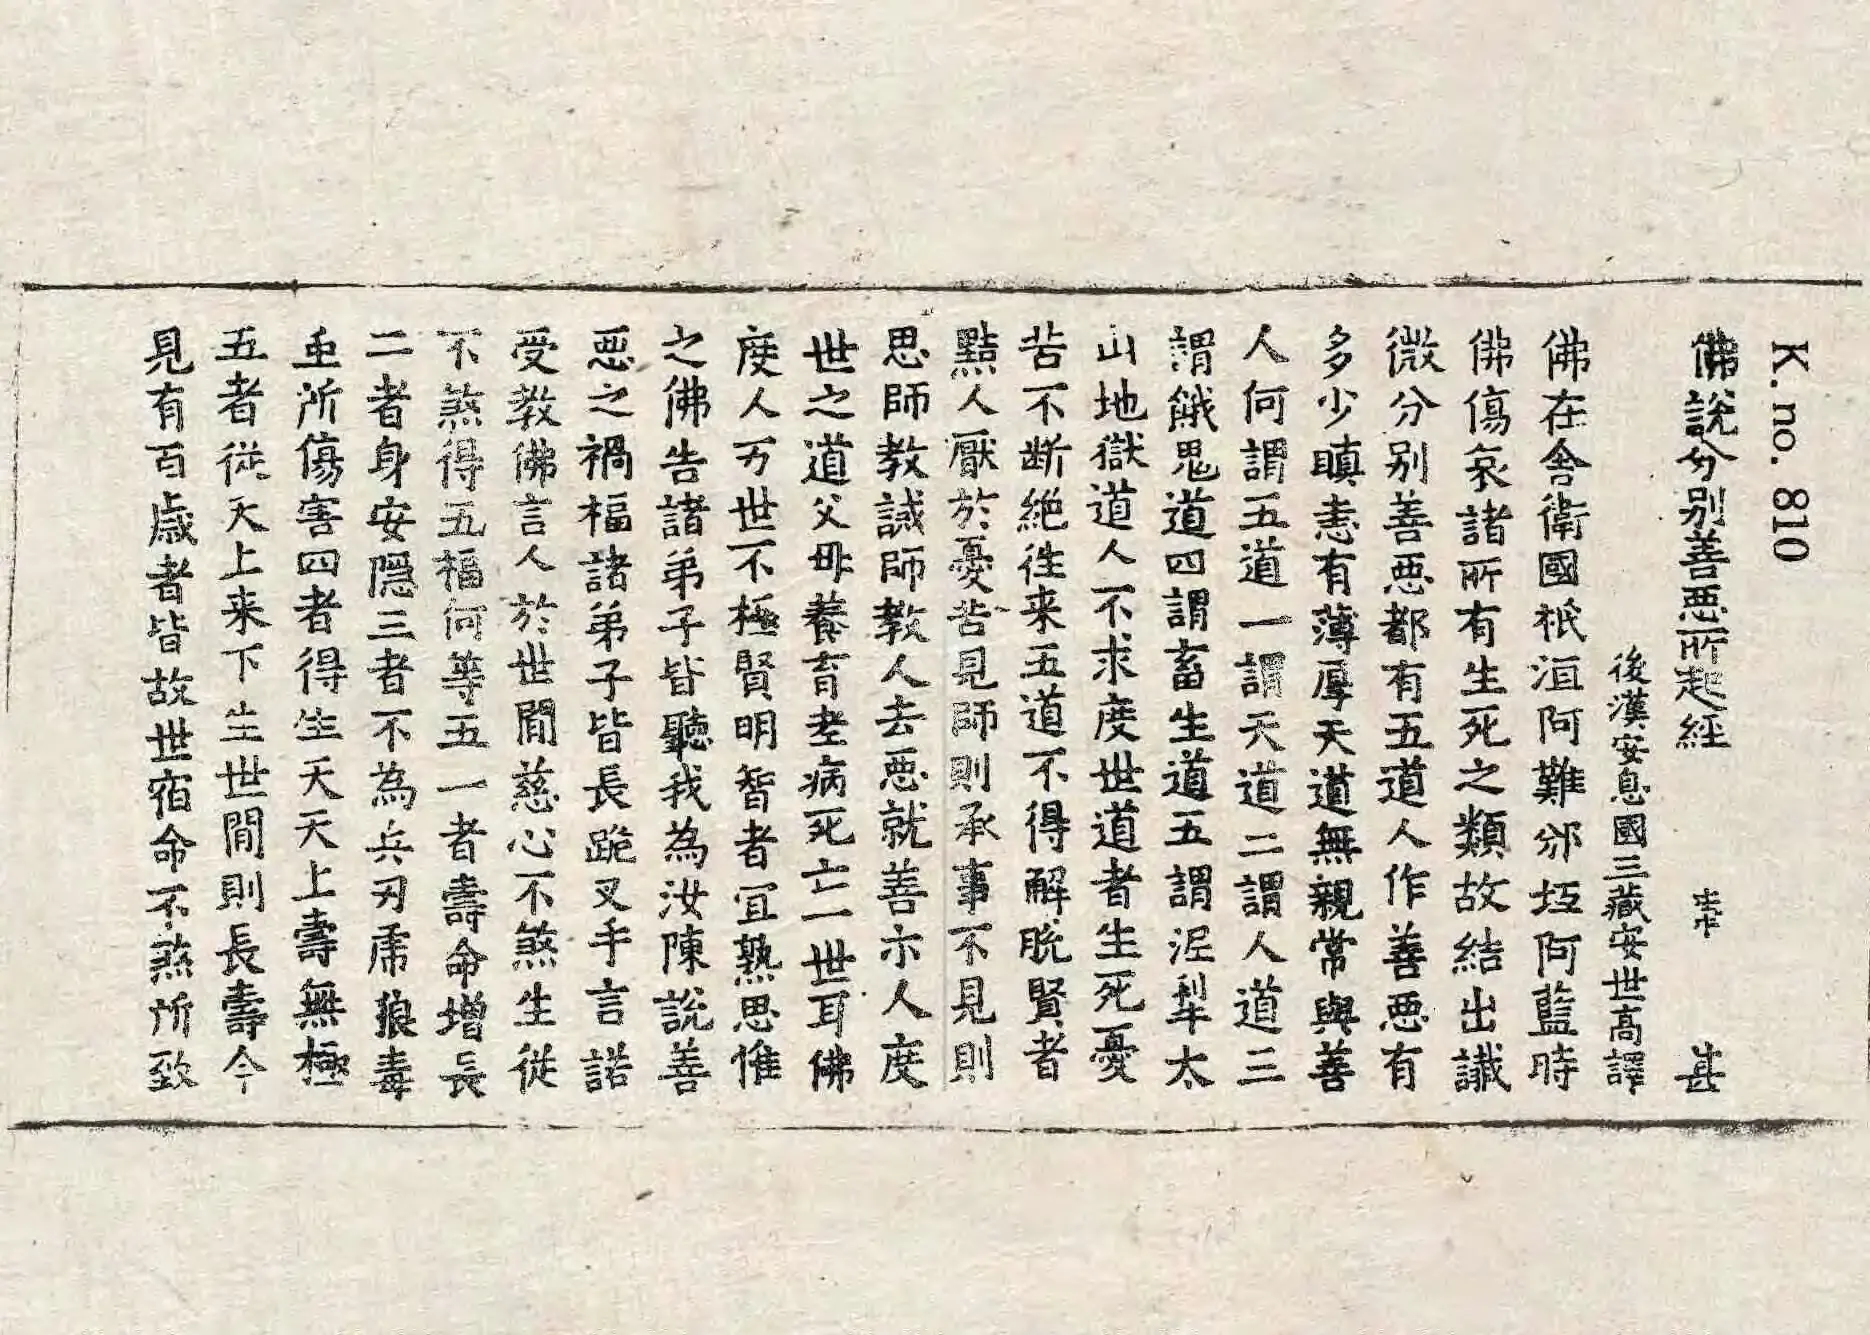 K. no. 810
佛說分別善惡所起經 甚
後漢安息國三藏安世高譯
佛在舍衛國祇洹阿難邠坻阿藍時
佛傷哀諸所有生死之類故結出讖
微分別善惡都有五道人作善惡有
多少瞋恚有薄厚天道無親常與善
人何謂五道一謂天道二謂人道三
謂餓鬼道四謂畜生道五謂泥犁太
山地獄道人不求度世道者生死憂
苦不断絶往来五道不得解脫賢者
黠人厭於憂苦見師則承事不見則
思師教誡師教人去惡就善示人度
世之道父母養育老病死亡一世耳佛
度人万世不極賢明智者宜熟思惟
之佛告諸弟子皆聽我為汝陳說善
惡之禍福諸弟子皆長跪叉手言諾
受教佛言人於世間慈心不煞生從
不煞得五福何等五一者壽命增長
二者身安隱三者不為兵刃虎狼毒
䖝所傷害四者得生天天上壽無極
五者從天上来下生世間則長壽今
見有百歲者皆故世宿命不煞所致